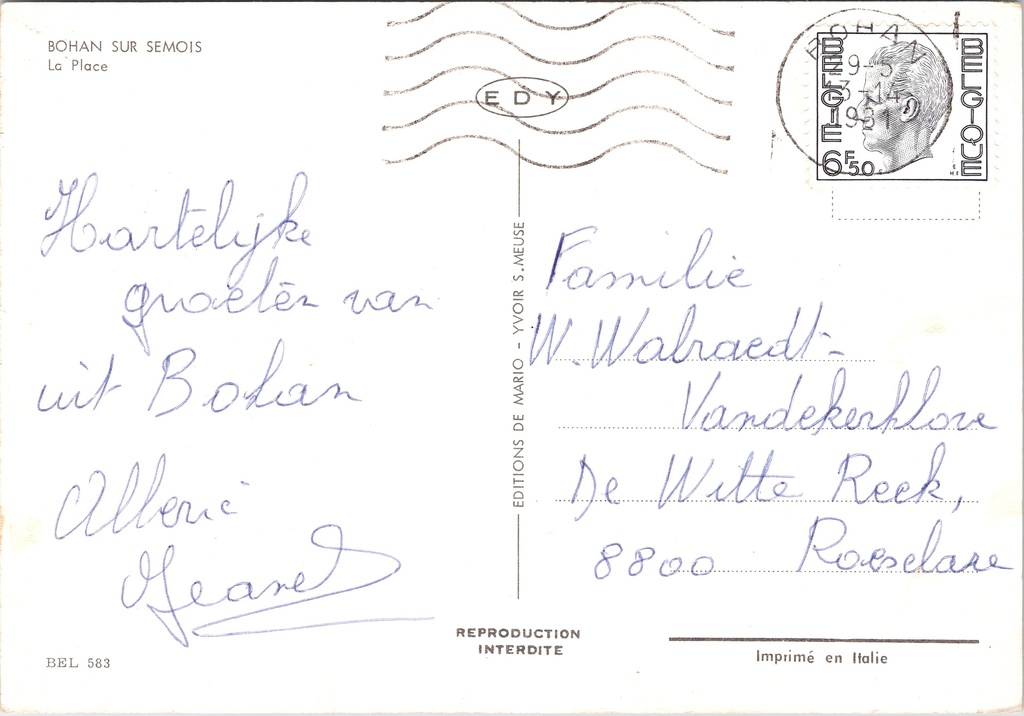 BOHAN SUR SEMOIS
La Place
EDY
BOHAN
BELGIE
BELGIQUE
6F50
Hartelijke
groeten van
uit Bohan
Alberic
Jeanne
BEL 583
EDITIONS DE MARIO - YVOIR S. MEUSE
Familie
W. Walraedt-
Vandekerkhove
De Witte Reek,
8800 Roeselare
REPRODUCTION
INTERDITE
Imprimé en Italie